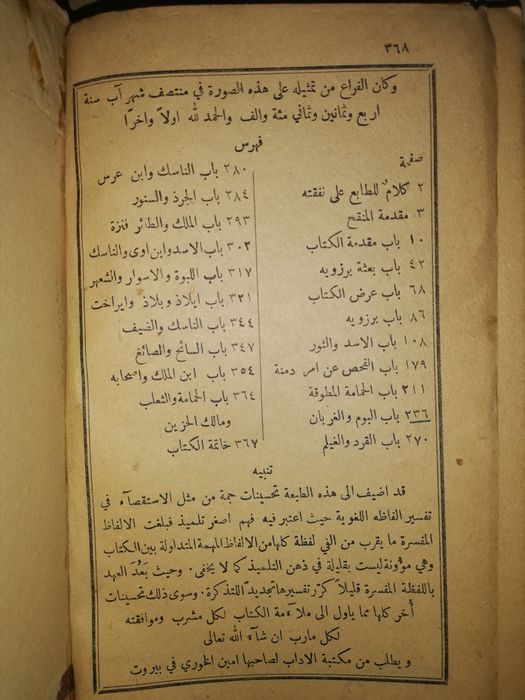 ٣٦٨
وكان الفراغ من تمثيله على هذه الصورة في منتصف شهر آب سنة
اربع وثمانين وثماني مئة والف والحمد لله اولاً واخرًا
فهرس
صفحة
٢ كلامٌ للطابع على نفقته
٣ مقدمة المنقح
١٠ باب مقدمة الكتاب
٤٢ باب بعثة برزويه
٦٨ باب عرض الكتاب
٨٦ باب برزويه
١٠٨ باب الاسد والثور
١٧٩ باب الفحص عن امر دمنة
٢١١ باب الحمامة المطوقة
٢٣٦ باب البوم والغربان
٢٧٠ باب القرد والغيلم
٢٨٠ باب الناسك وابن عرس
٢٨٤ باب الجرذ والسنور
٢٩٣ باب الملك والطائر فنزة
٣٠٢ باب الاسد وابن اوى والناسك
٣١٧ باب اللبوة والاسوار والشعهر
٣٢١ باب ايلاذ وبلاذ وايراخت
٣٤٤ باب الناسك والضيف
٣٤٧ باب السائح والصائغ
٣٥٤ باب ابن الملك واصحابه
٣٦٤ باب الحمامة والثعلب
ومالك الحزين
٣٦٧ خاتمة الكتاب
تنبيه
قد اضيف الى هذه الطبعة تحسينات جمة من مثل الاستقصآء في
تفسير الفاظه اللغوية حيث اعتبر فيه فهم اصغر تلميذ فبلغت الالفاظ
المفسرة ما يقرب من الفي لفظة كلها من الالفاظ المهمة المتداولة بين الكتاب
وهي مؤونة ليست بقليلة في ذهن التلميذ كما لا يخفى. وحيث بَعُدَ العهد
باللفظة المفسرة قليلاً كرّر تفسيرها تجديدًا للتذكرة. وسوى ذلك تحسينات
أُخر كلها مما ياول الى ملآءمة الكتاب لكل مشرب وموافقته
لكل مارب ان شآء الله تعالى
ويطلب من مكتبة الاداب لصاحبها امين الخوري في بيروت